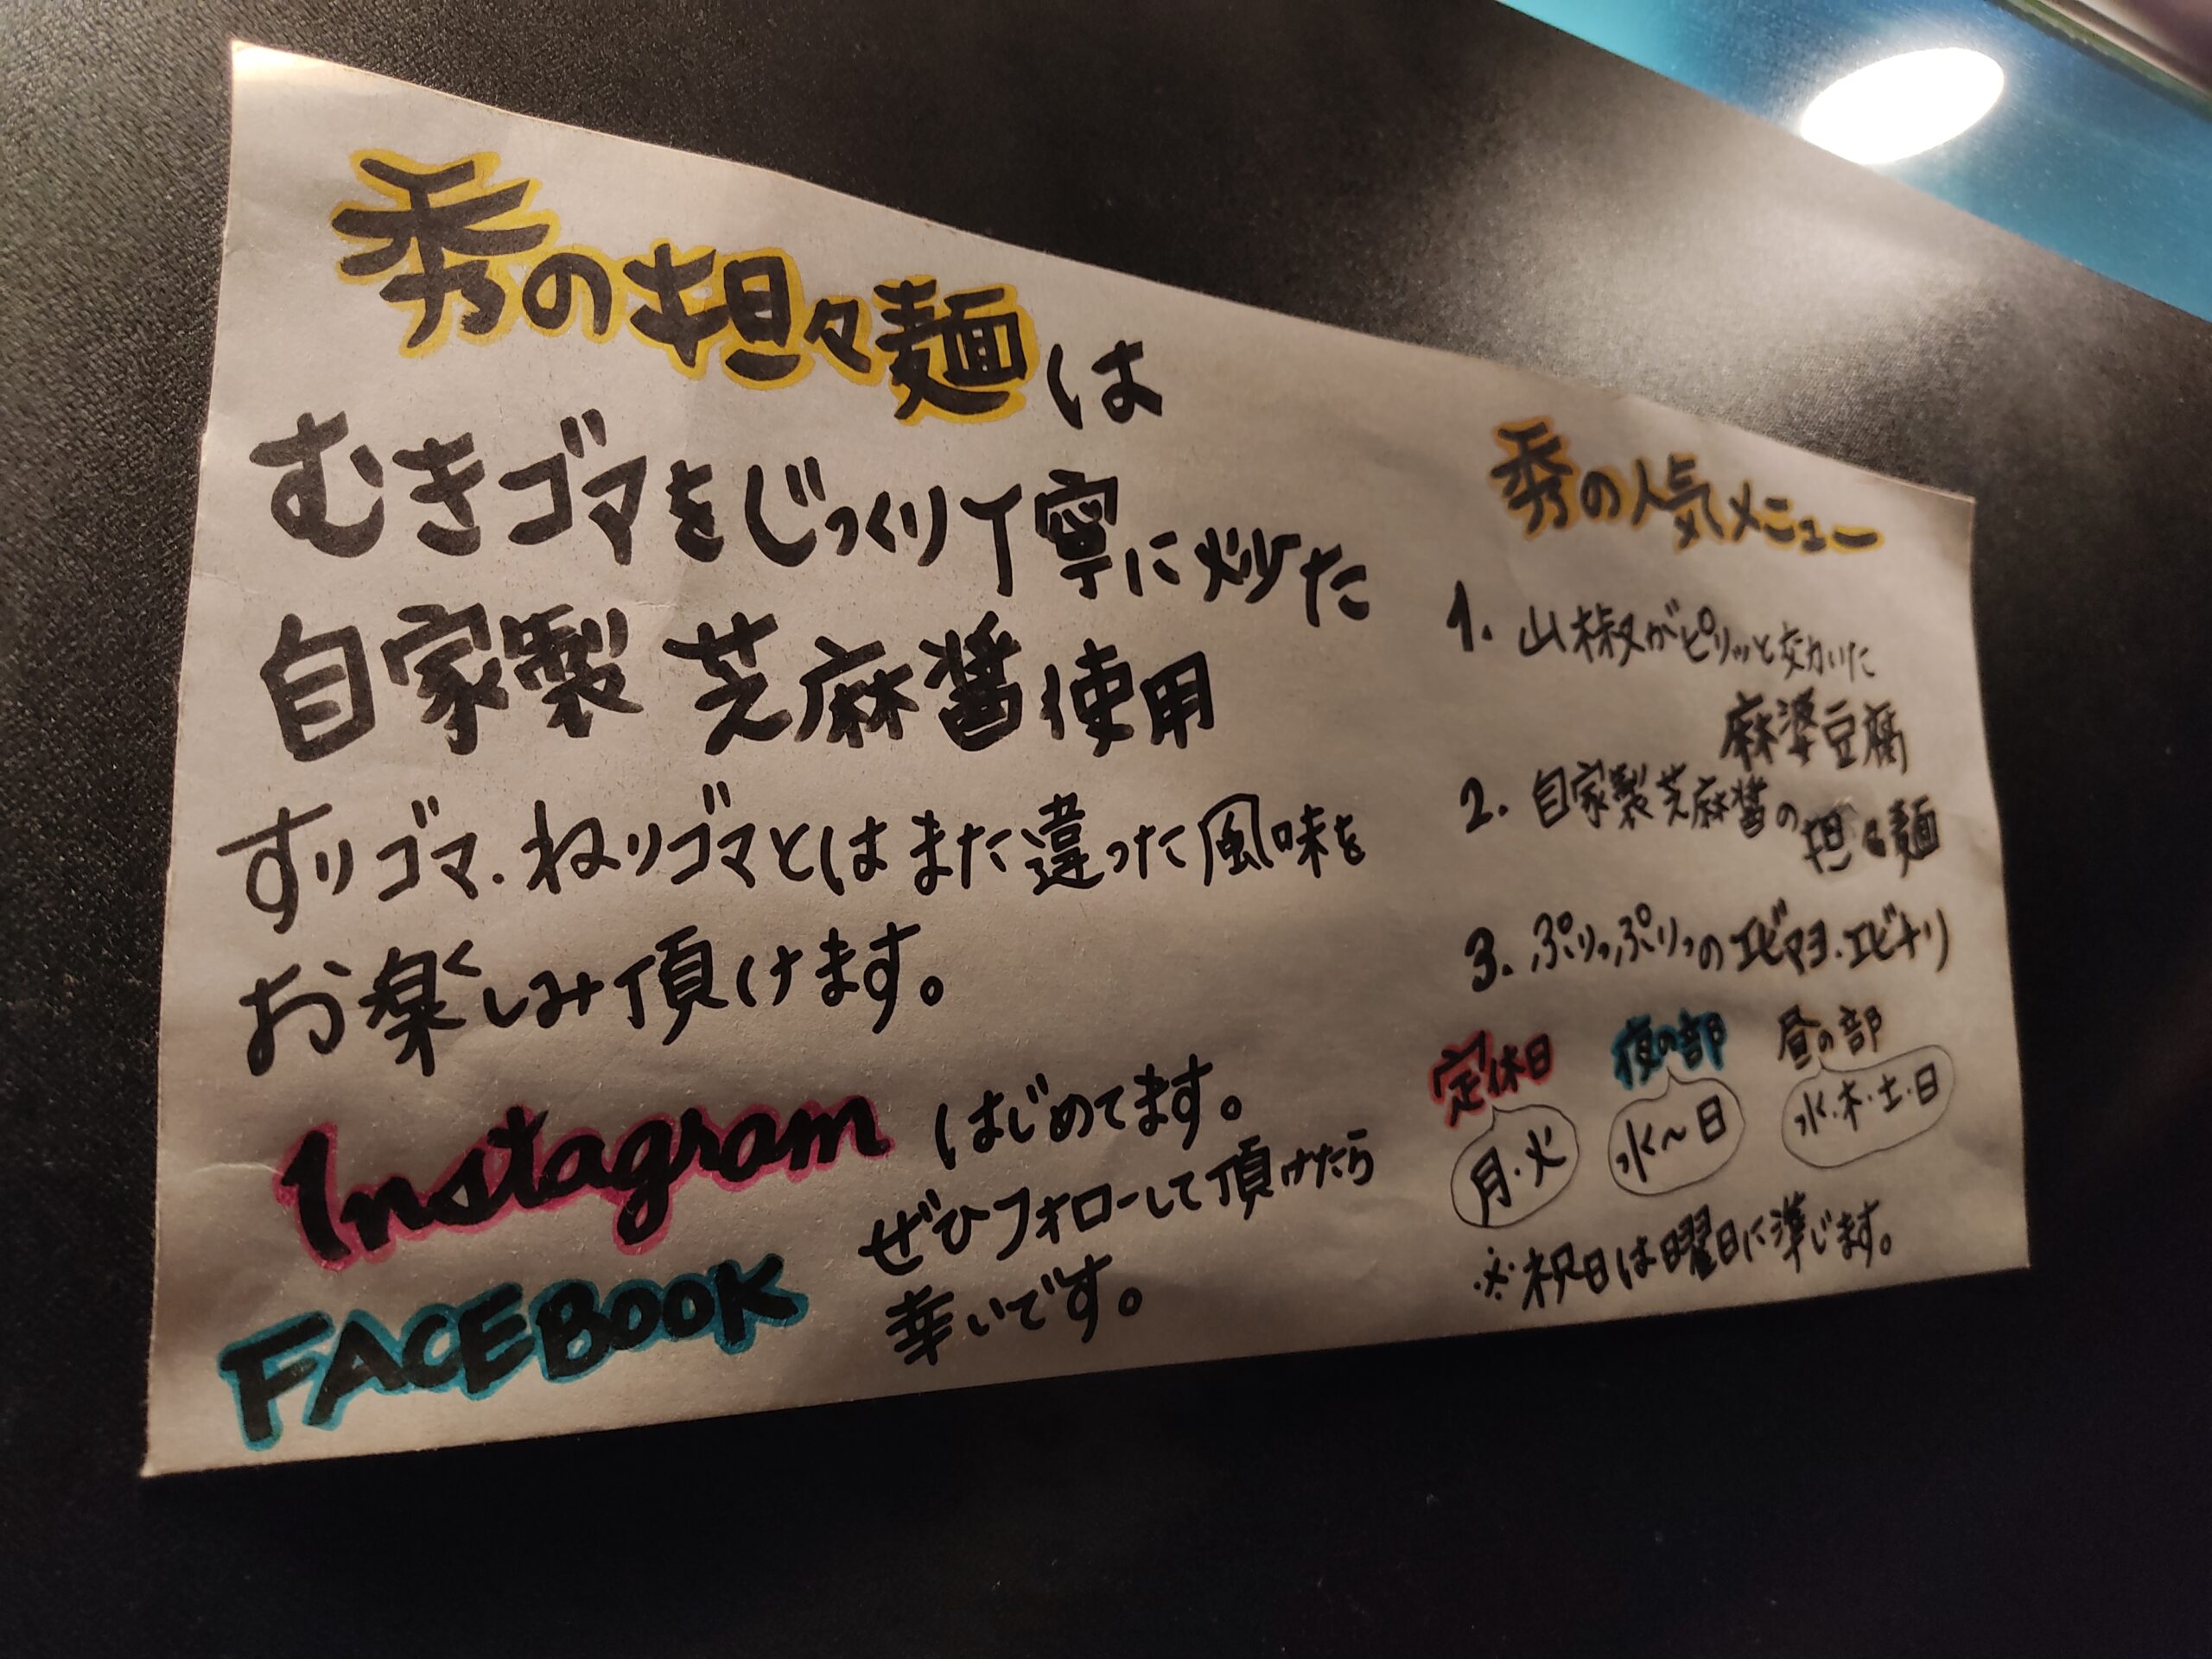 秀の担々麺は
むきゴマをじっくり丁寧に炒た
自家製 芝麻醤使用
すりゴマ.ねりゴマとはまた違った風味を
お楽しみ頂けます。
Instagram はじめてます。
FACEBOOK ぜひフォローして頂けたら
幸いです。
秀の人気メニュー
1. 山椒がピリッと効いた
麻婆豆腐
2. 自家製芝麻醤の担々麺
3. ぷりっぷりっのエビマヨ.エビチリ
定休日 夜の部 昼の部
月・火 水〜日 水・木・土・日
※祝日は曜日に準じます。